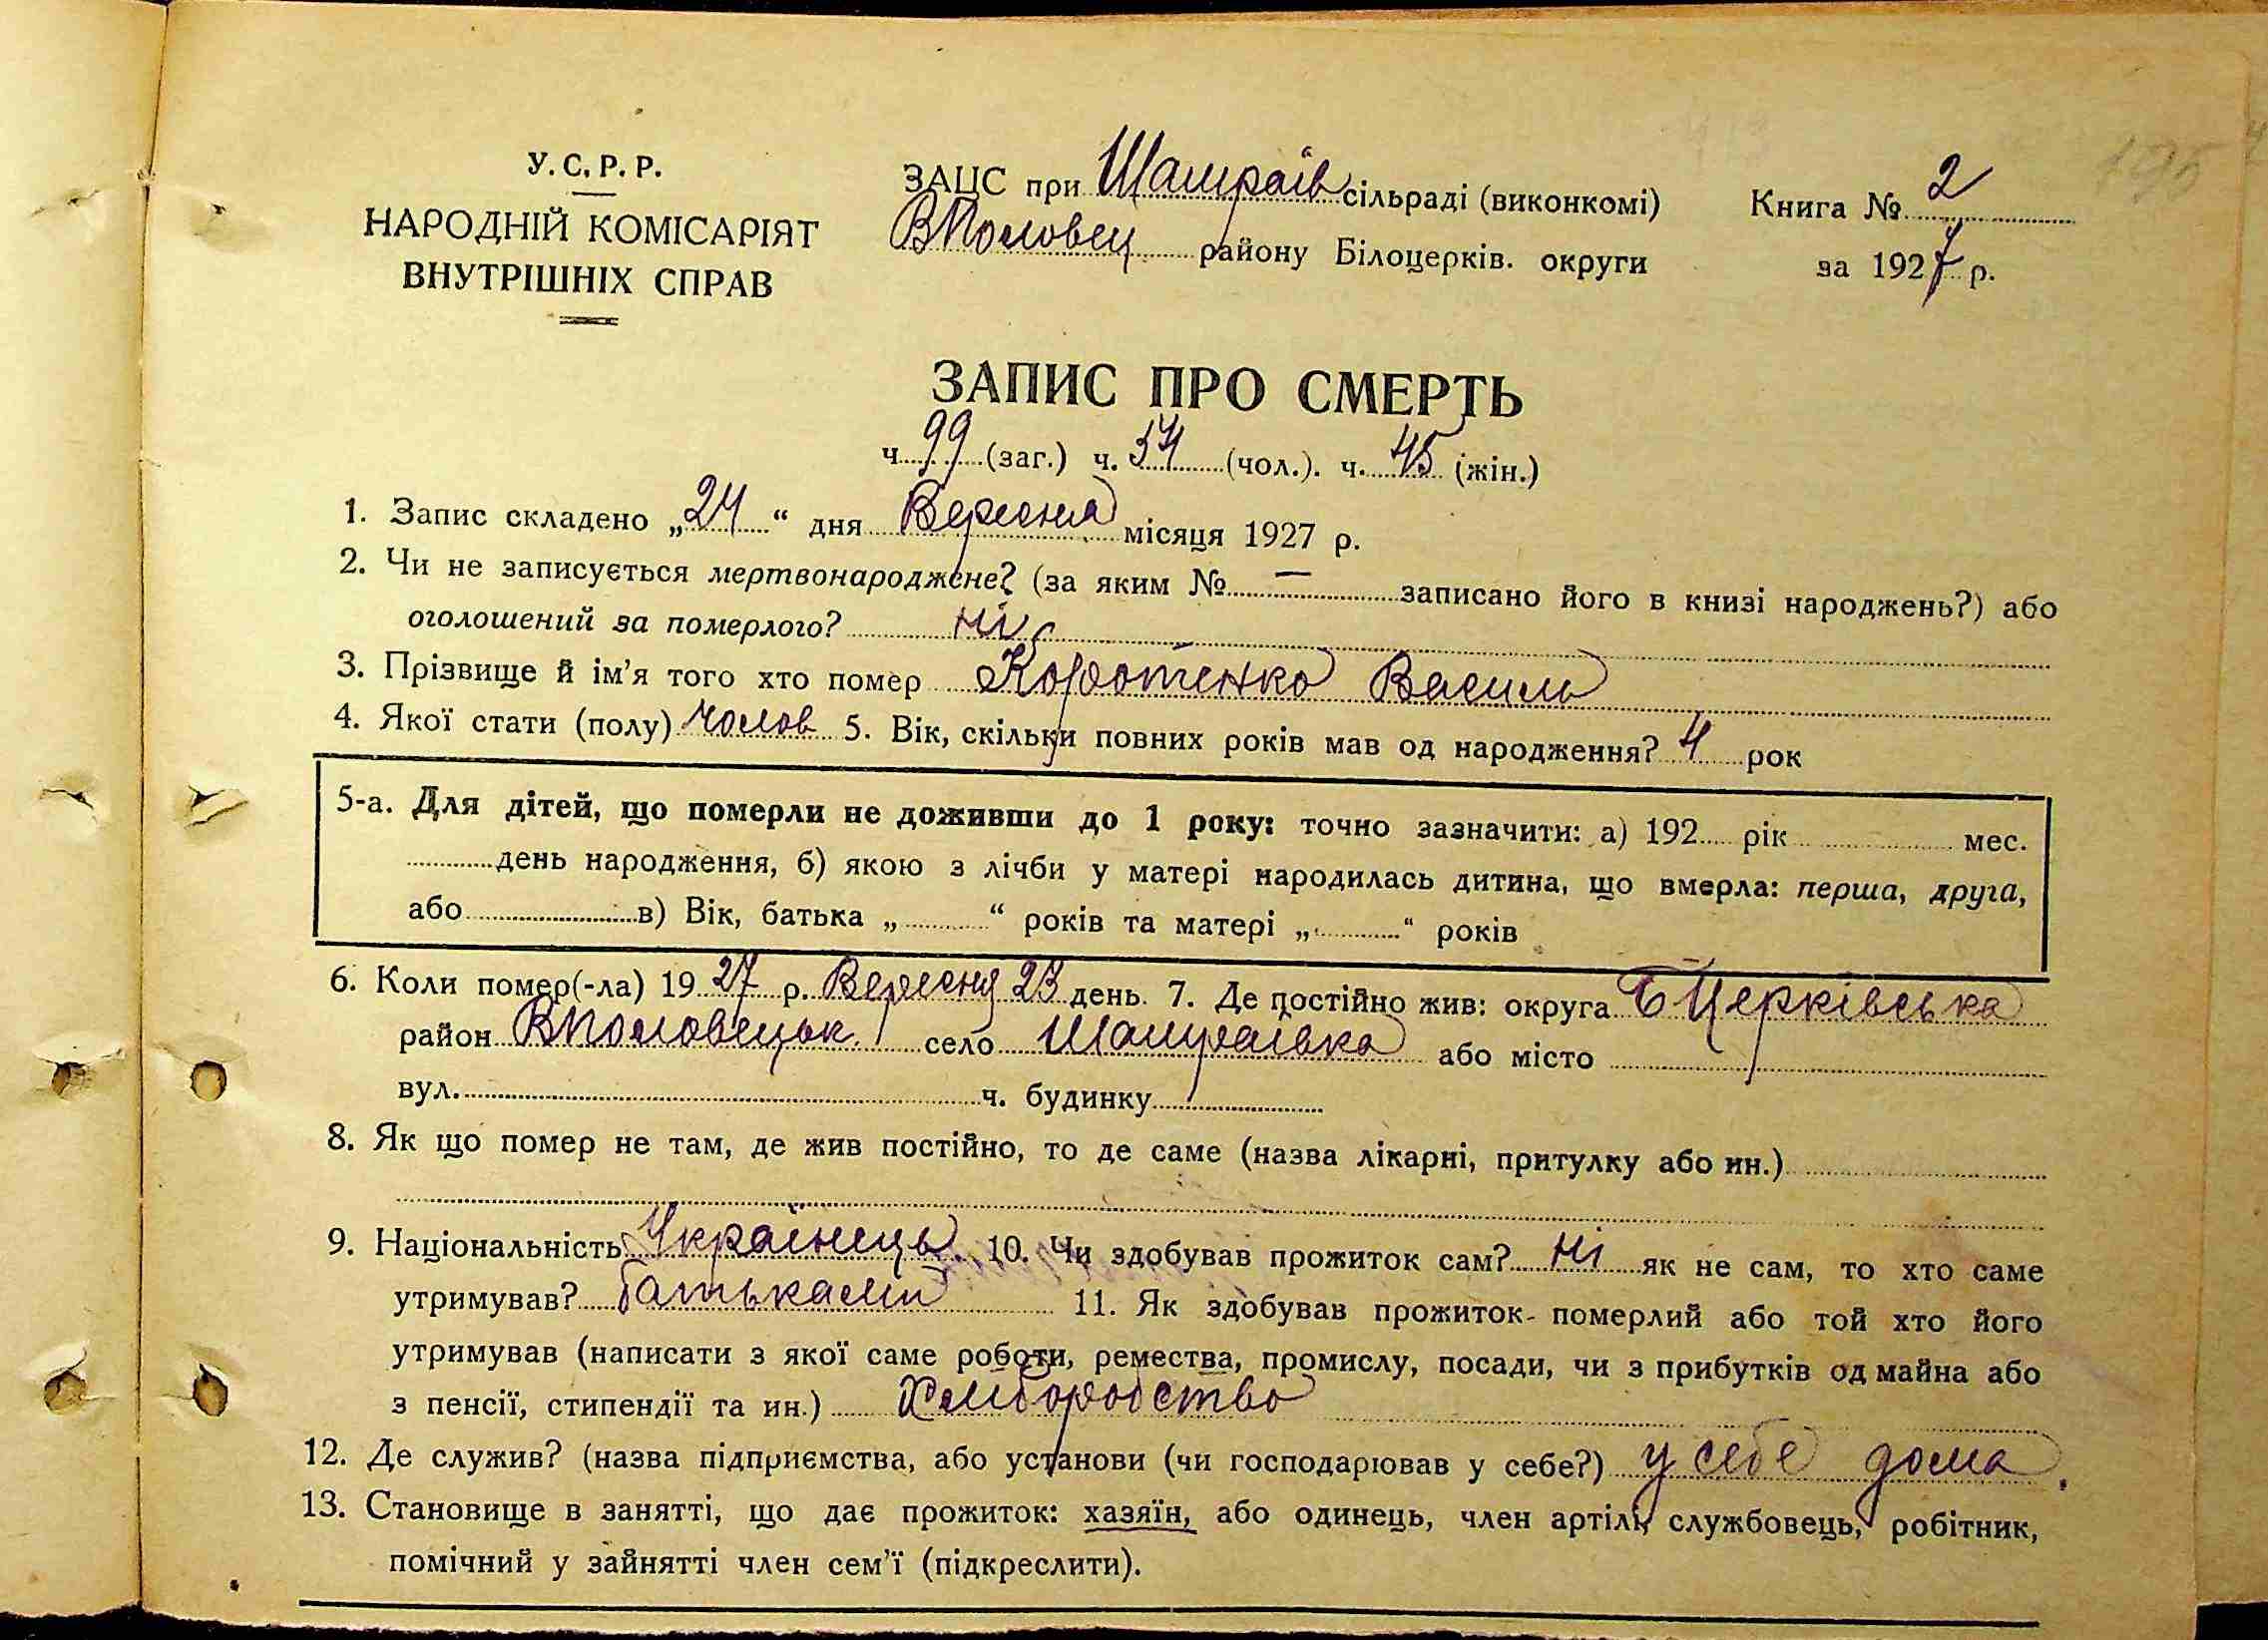 195
У.С.Р.Р.
НАРОДНІЙ КОМІСАРІЯТ
ВНУТРІШНІХ СПРАВ
ЗАЦС при Шамраїв сільраді (виконкомі)
ВПоловец району Білоцерків. округи
Книга № 2
за 1927 р.
ЗАПИС ПРО СМЕРТЬ
ч. 99 (заг.) ч. 54 (чол.). ч. 45 (жін.)
1. Запис складено „24“ дня Вересня місяця 1927 р.
2. Чи не записується мертвонароджене? (за яким № — записано його в книзі народжень?) або
оголошений за померлого? ні
3. Прізвище й ім’я того хто помер Коротенко Василь
4. Якої стати (полу) Чолов 5. Вік, скільки повних років мав од народження? 4 рок
5-а. Для дітей, що померли не доживши до 1 року: точно зазначити: а) 192 рік мес.
день народження, б) якою з лічби у матері народилась дитина, що вмерла: перша, друга,
або в) Вік, батька „ “ років та матері „ “ років
6. Коли помер(-ла) 1927 р. Вересня 23 день. 7. Де постійно жив: округа БЦерківська
район ВПоловецьк. село Шамраївка або місто
вул. ч. будинку
8. Як що помер не там, де жив постійно, то де саме (назва лікарні, притулку або ин.)
9. Національність Українець. 10. Чи здобував прожиток сам? Ні як не сам, то хто саме
утримував? батьками 11. Як здобував прожиток- померлий або той хто його
утримував (написати з якої саме роботи, ремества, промислу, посади, чи з прибутків од майна або
з пенсії, стипендії та ин.) Хлиборобство
12. Де служив? (назва підприємства, або установи (чи господарював у себе?) у себе дома.
13. Становище в занятті, що дає прожиток: хазяїн, або одинець, член артілі, службовець, робітник,
помічний у зайнятті член сем’ї (підкреслити).